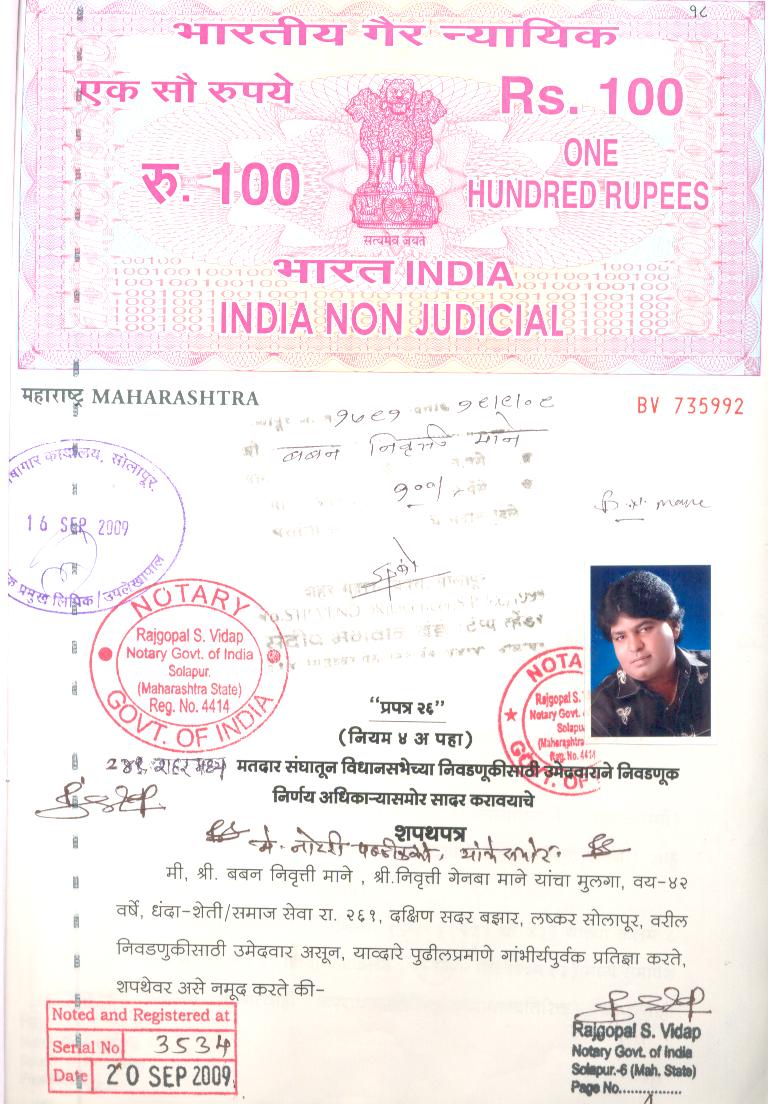 १८
भारतीय गैर न्यायिक
एक सौ रुपये
Rs. 100
रु. 100
ONE
HUNDRED RUPEES
सत्यमेव जयते
भारत INDIA
INDIA NON JUDICIAL
महाराष्ट्र MAHARASHTRA
BV 735992
१७८९
१८/९/०९
बबन निवृत्ती माने
१००/
कार्यालय, सोलापूर.
16 SEP 2009
प्रमुख लिपिक / उपलेखापाल
NOTARY
Rajgopal S. Vidap
Notary Govt. of India
Solapur.
(Maharashtra State)
Reg. No. 4414
GOVT. OF INDIA
NOTA
Rajgopal S.
Notary Govt.
Solapu
(Maharashtra
Reg. No. 441
GOVT. OF
"प्रपत्र २६"
(नियम ४ अ पहा)
२४९ शहर मध्य मतदार संघातून विधानसभेच्या निवडणूकीसाठी उमेदवाराने निवडणूक
निर्णय अधिकाऱ्यासमोर सादर करावयाचे
शपथपत्र
मे. नोटरी पब्लीक, यांचेसमोर.
मी, श्री. बबन निवृत्ती माने , श्री.निवृत्ती गेनबा माने यांचा मुलगा, वय-४२
वर्षे, धंदा-शेती/समाज सेवा रा. २६१, दक्षिण सदर बझार, लष्कर सोलापूर, वरील
निवडणुकीसाठी उमेदवार असून, याव्दारे पुढीलप्रमाणे गांभीर्यपुर्वक प्रतिज्ञा करते,
शपथेवर असे नमूद करते की-
Noted and Registered at
Serial No 3534
Date 20 SEP 2009
Rajgopal S. Vidap
Notary Govt. of India
Solapur.-6 (Mah. State)
Page No................
1